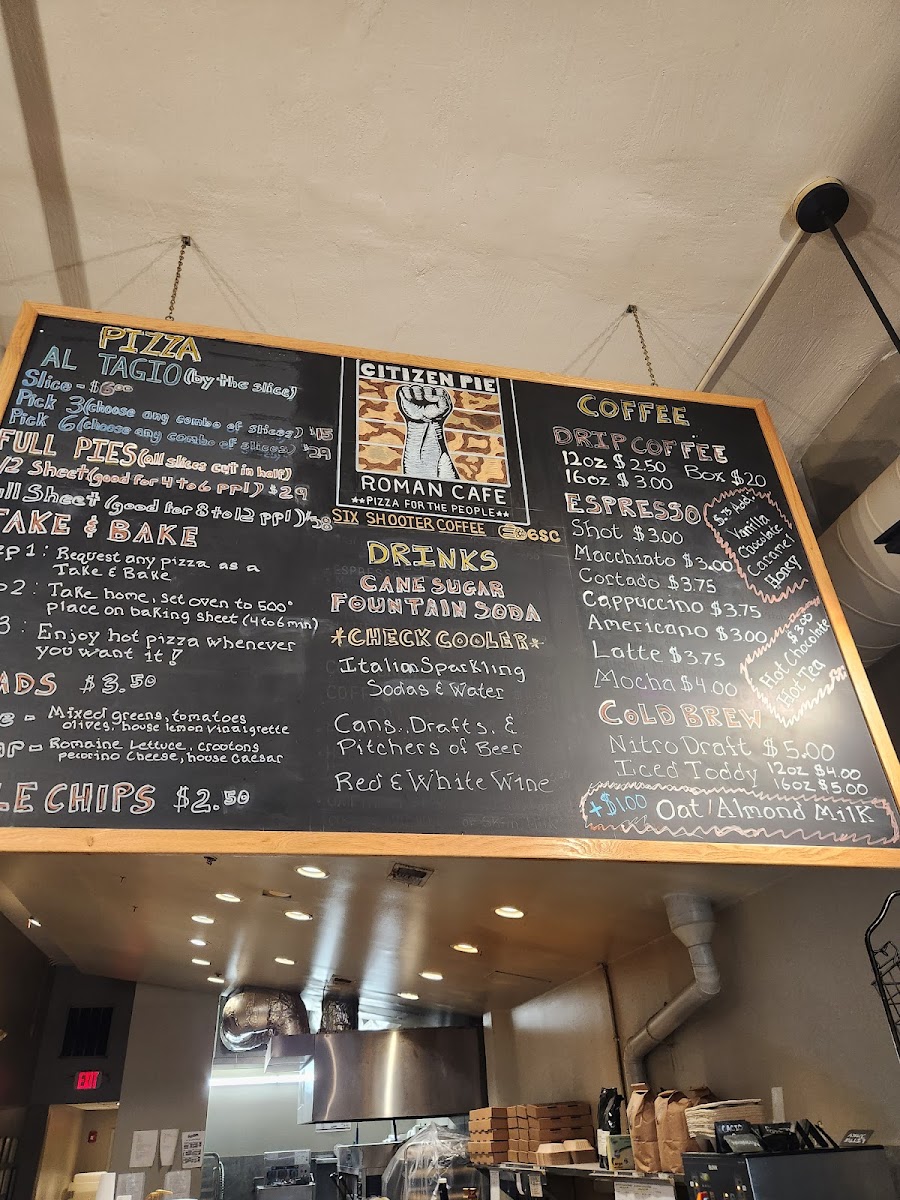 PIZZA
AL TAGIO (by the slice)
Slice - $6.00
Pick 3 (choose any combo of slices) $15
Pick 6 (choose any combo of slices) $29
FULL PIES (all slices cut in half)
1/2 Sheet (good for 4 to 6 ppl) $29
ull Sheet (good for 8 to 12 ppl)
TAKE & BAKE
ep 1: Request any pizza as a
Take & Bake
2: Take home, set oven to 500°
place on baking sheet (4 to 6 min)
3: Enjoy hot pizza whenever
you want it!
ADS $3.50
e - Mixed greens, tomatoes
olives, house lemon vinaigrette
ar - Romaine Lettuce, crootons
pecorino cheese, house caesar
LE CHIPS $2.50
CITIZEN PIE
ROMAN CAFE
★★PIZZA FOR THE PEOPLE★★
SIX SHOOTER COFFEE
DRINKS
CANE SUGAR
FOUNTAIN SODA
*CHECK COOLER*
Italian Sparkling
Sodas & Water
Cans, Drafts, &
Pitchers of Beer
Red & White Wine
COFFEE
DRIP COFFEE
12oz $2.50
16oz $3.00
Box $20
ESPRESSO
Shot $3.00
Macchiato $3.00
Cortado $3.75
Cappuccino $3.75
Americano $3.00
Latte $3.75
Mocha $4.00
$.75 Add:
Vanilla
Chocolate
Caramel
Honey
$3.00
Hot Chocolate
Hot Tea
COLD BREW
Nitro Draft $5.00
Iced Toddy 12oz $4.00
16oz $5.00
+$1.00 Oat/Almond Milk
EXIT